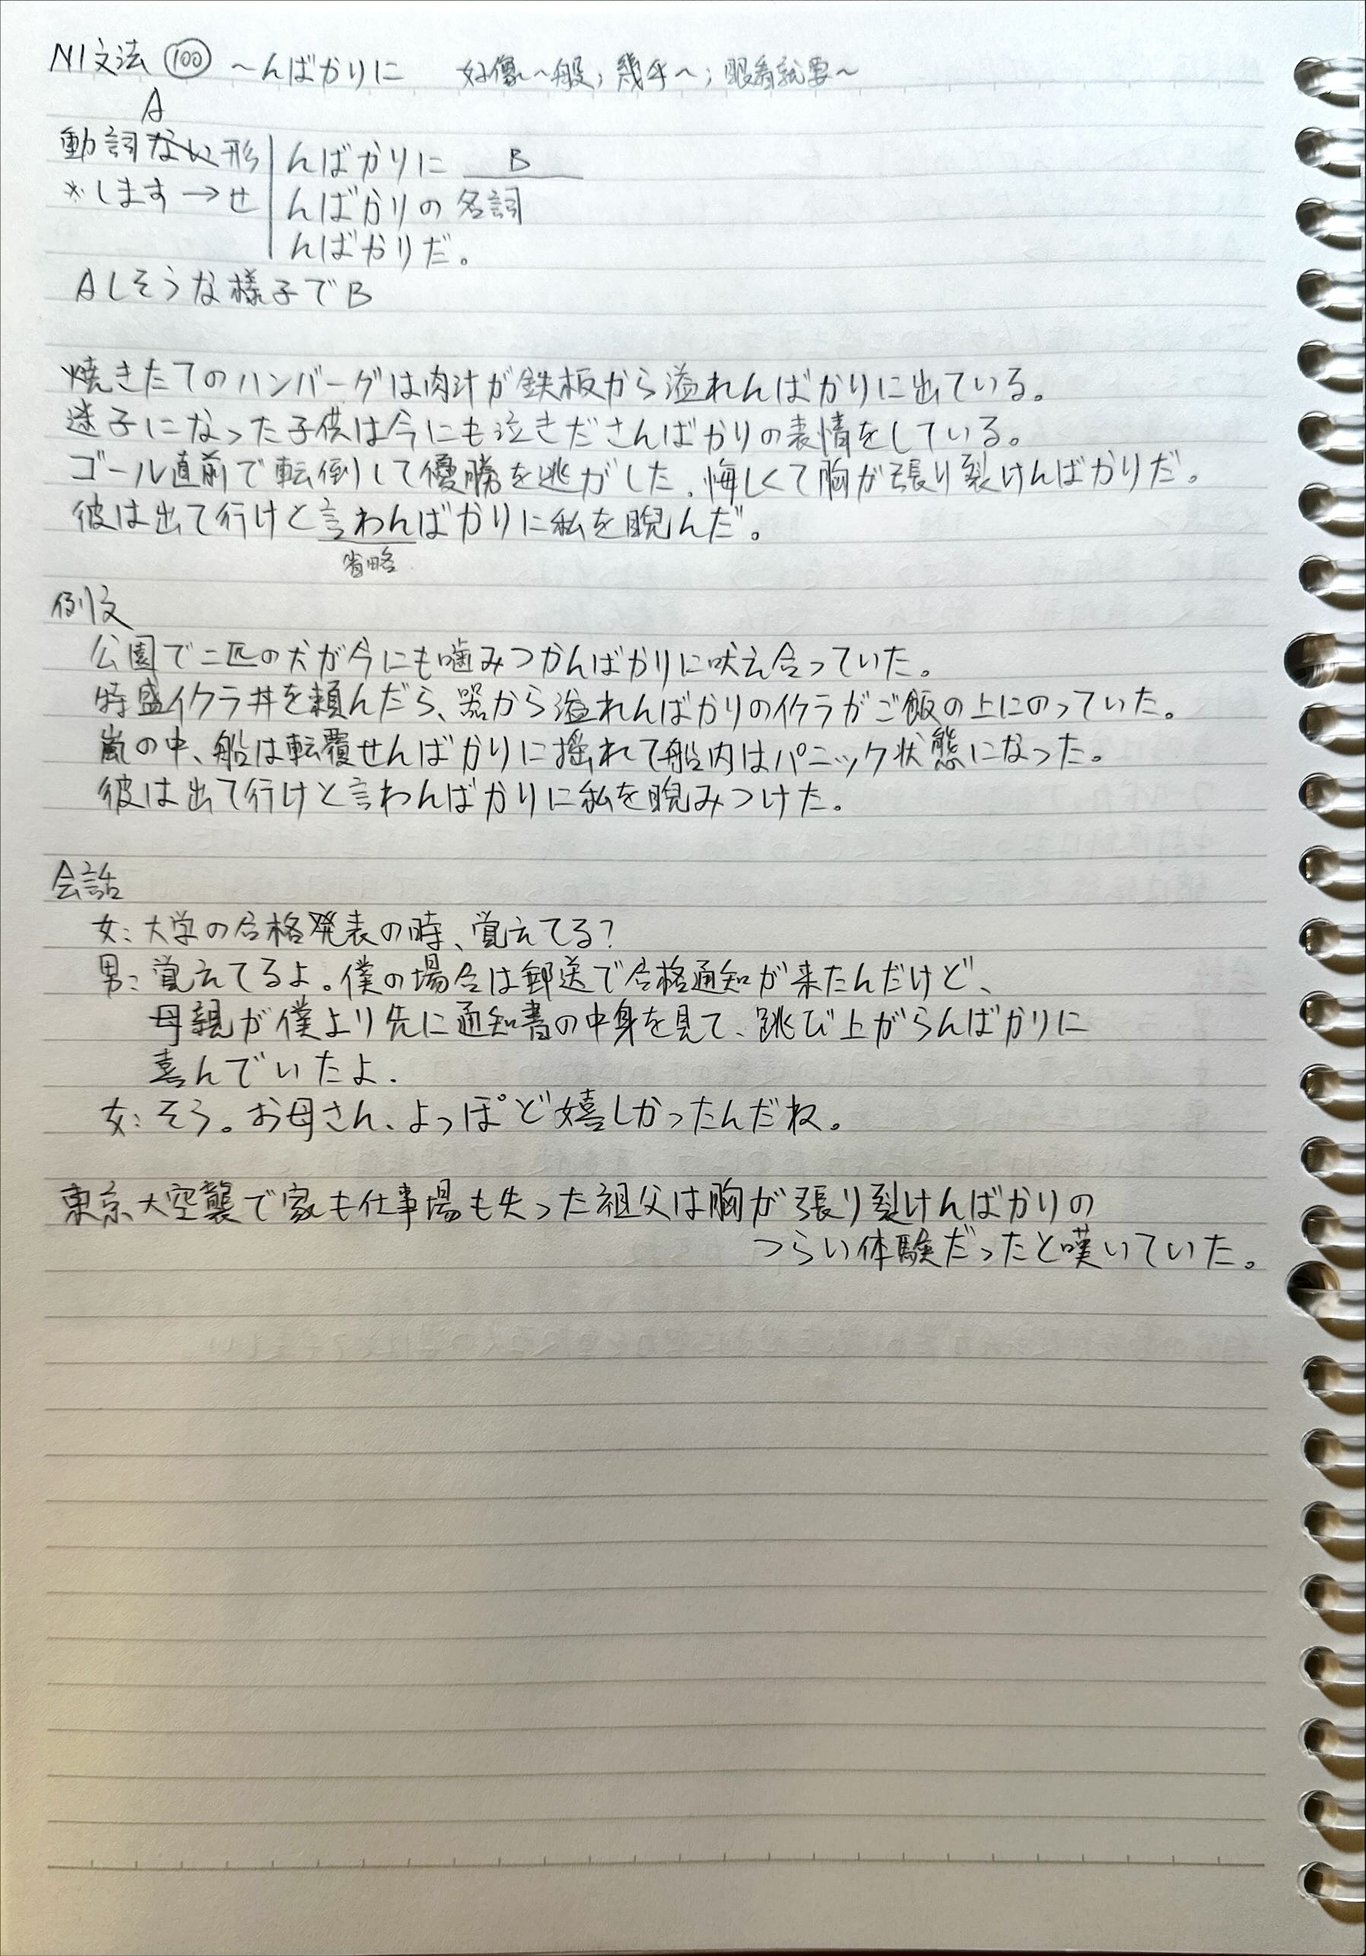 N1文法 100 〜んばかりに 好像〜一般；幾乎〜；眼看就要〜
A
動詞ない形 んばかりに B
*します→せ んばかりの 名詞
んばかりだ。
Aしそうな様子でB
焼きたてのハンバーグは肉汁が鉄板から溢れんばかりに出ている。
迷子になった子供は今にも泣きださんばかりの表情をしている。
ゴール直前で転倒して優勝を逃がした、悔しくて胸が張り裂けんばかりだ。
彼は出て行けと言わんばかりに私を睨んだ。
省略
例文
公園で二匹の犬が今にも噛みつかんばかりに吠え合っていた。
特盛イクラ丼を頼んだら、器から溢れんばかりのイクラがご飯の上にのっていた。
嵐の中、船は転覆せんばかりに揺れて船内はパニック状態になった。
彼は出て行けと言わんばかりに私を睨みつけた。
会話
女：大学の合格発表の時、覚えてる？
男：覚えてるよ。僕の場合は郵送で合格通知が来たんだけど、
母親が僕より先に通知書の中身を見て、跳び上がらんばかりに
喜んでいたよ.
女：そう。お母さん、よっぽど嬉しかったんだね。
東京大空襲で家も仕事場も失った祖父は胸が張り裂けんばかりの
つらい体験だったと嘆いていた。